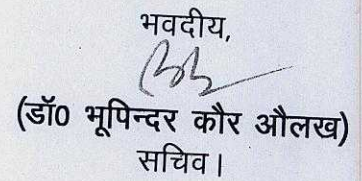 भवदीय,
(डॉ0 भूपिन्दर कौर औलख)
सचिव।